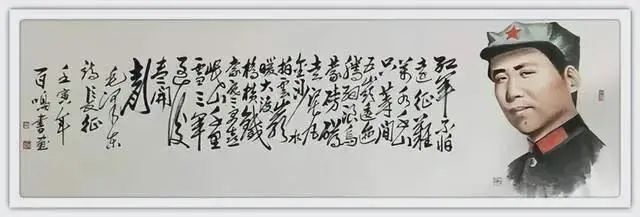 红军不怕
远征難
万水千山
只等闲
五岭逶迤
腾细浪乌
蒙磅礴
走泥丸
金沙水
拍雲崖
暖大渡
桥横鐵
索寒更喜
岷山千里
雪三军
过後
尽開
颜
毛泽东
诗長征
壬寅年
百鸣書画